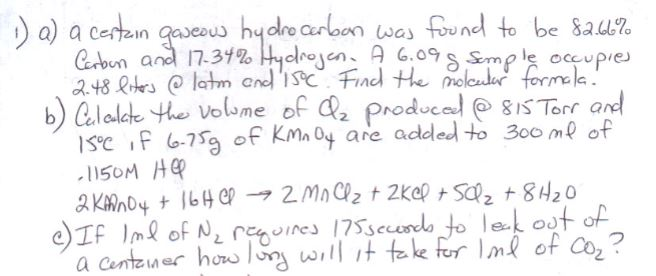 1) a) a certain gaseous hydrocarbon was found to be 82.66%
Carbon and 17.34% Hydrogen. A 6.09 g Sample occupies
2.48 liters @ 1atm and 15°C. Find the molecular formula.
b) Calculate the volume of Cl2 produced @ 815 Torr and
15°C if 6.75g of KMnO4 are added to 300 ml of
.1150M HCl
2KMnO4 + 16HCl → 2MnCl2 + 2KCl + 5Cl2 + 8H2O
c) If 1ml of N2 requires 175 seconds to leak out of
a container how long will it take for 1ml of CO2?